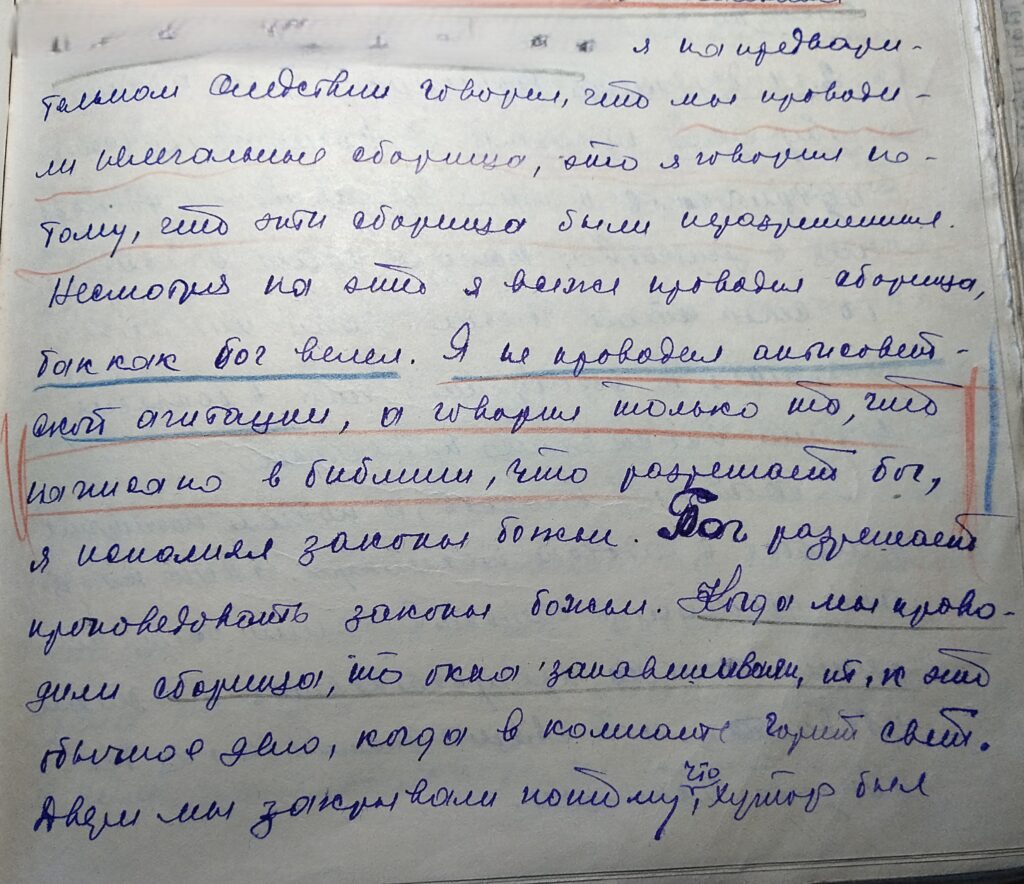 я на предвари-
тельном следствии говорил, что мы проводи-
ли нелегальные сборища, это я говорил по-
тому, что эти сборища были неразрешенные.
Несмотря на это я всеже проводил сборища,
так как бог велел. Я не проводил антисовет-
ской агитации, а говорил только то, что
написано в библии, что разрешает бог,
я исполнял законы божьи. Бог разрешает
проповедовать законы божьи. Когда мы прово-
дили сборища, то окна занавешивали, т. к это
обычное дело, когда в комнате горит свет.
Двери мы закрывали потому, что хутор был